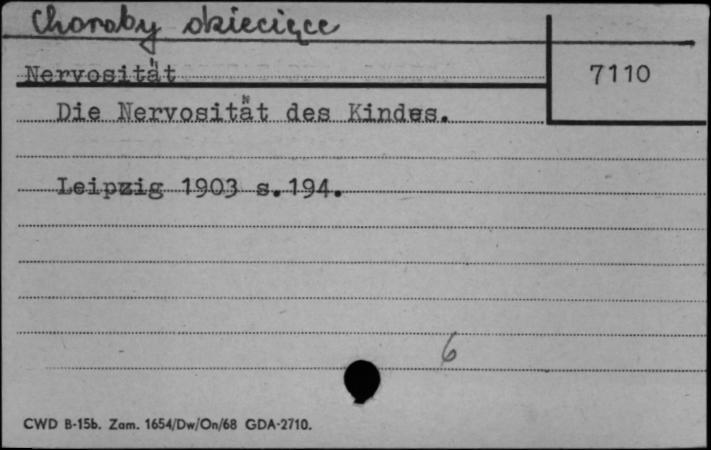 Choroby dziecięce
Nervosität
7110
Die Nervosität des Kindes.
Leipzig 1903 s.194.
6
CWD B-15b. Zam. 1654/Dw/On/68 GDA-2710.